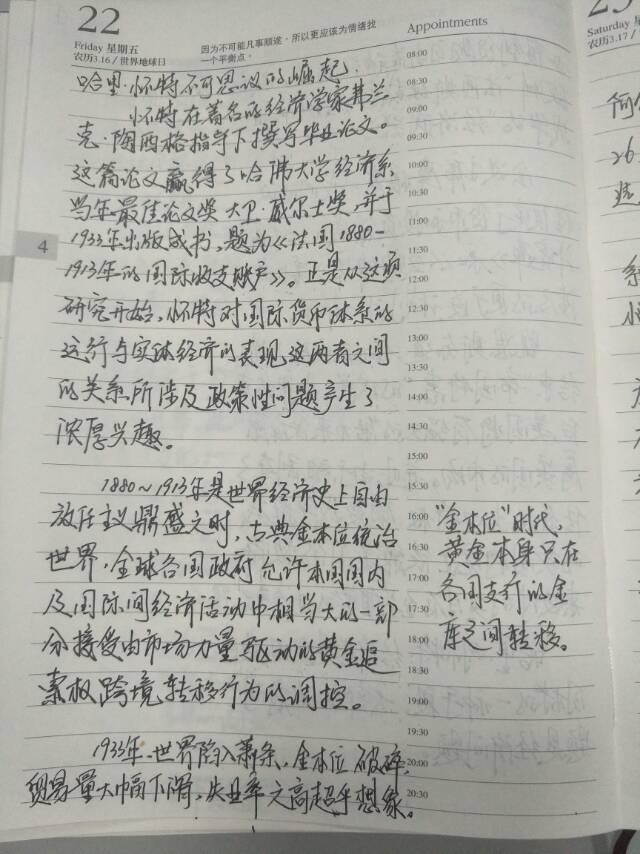 22
Friday 星期五
农历3.16/世界地球日
因为不可能凡事顺遂，所以更应该为情绪找
一个平衡点。
哈里·怀特不可思议的崛起.
怀特在著名的经济学家弗兰
克·陶西格指导下撰写毕业论文。
这篇论文赢得了哈佛大学经济系
当年最佳论文奖大卫·威尔士奖,并于
1933年出版成书,题为《法国1880-
1913年的国际收支账户》。正是从这项
研究开始,怀特对国际货币体系的
运行与实体经济的表现这两者之间
的关系所涉及政策性问题产生了
浓厚兴趣。
1880~1913年是世界经济史上自由
放任主义鼎盛之时,古典金本位统治
世界,全球各国政府允许本国国内
及国际间经济活动中相当大的一部
分接受由市场力量驱动的黄金追
索权跨境转移行为的调控。
1933年,世界陷入萧条,金本位破碎,
贸易量大幅下滑,失业率之高超乎想象。
4
Appointments
08:00
08:30
09:00
09:30
10:00
10:30
11:00
11:30
12:00
12:30
13:00
13:30
14:00
14:30
15:00
15:30
16:00
16:30
17:00
17:30
18:00
18:30
19:00
19:30
20:00
20:30
"金本位"时代,
黄金本身只在
各国支行的金
库之间转移。
Saturday
农历3.17/
何
26
选
系